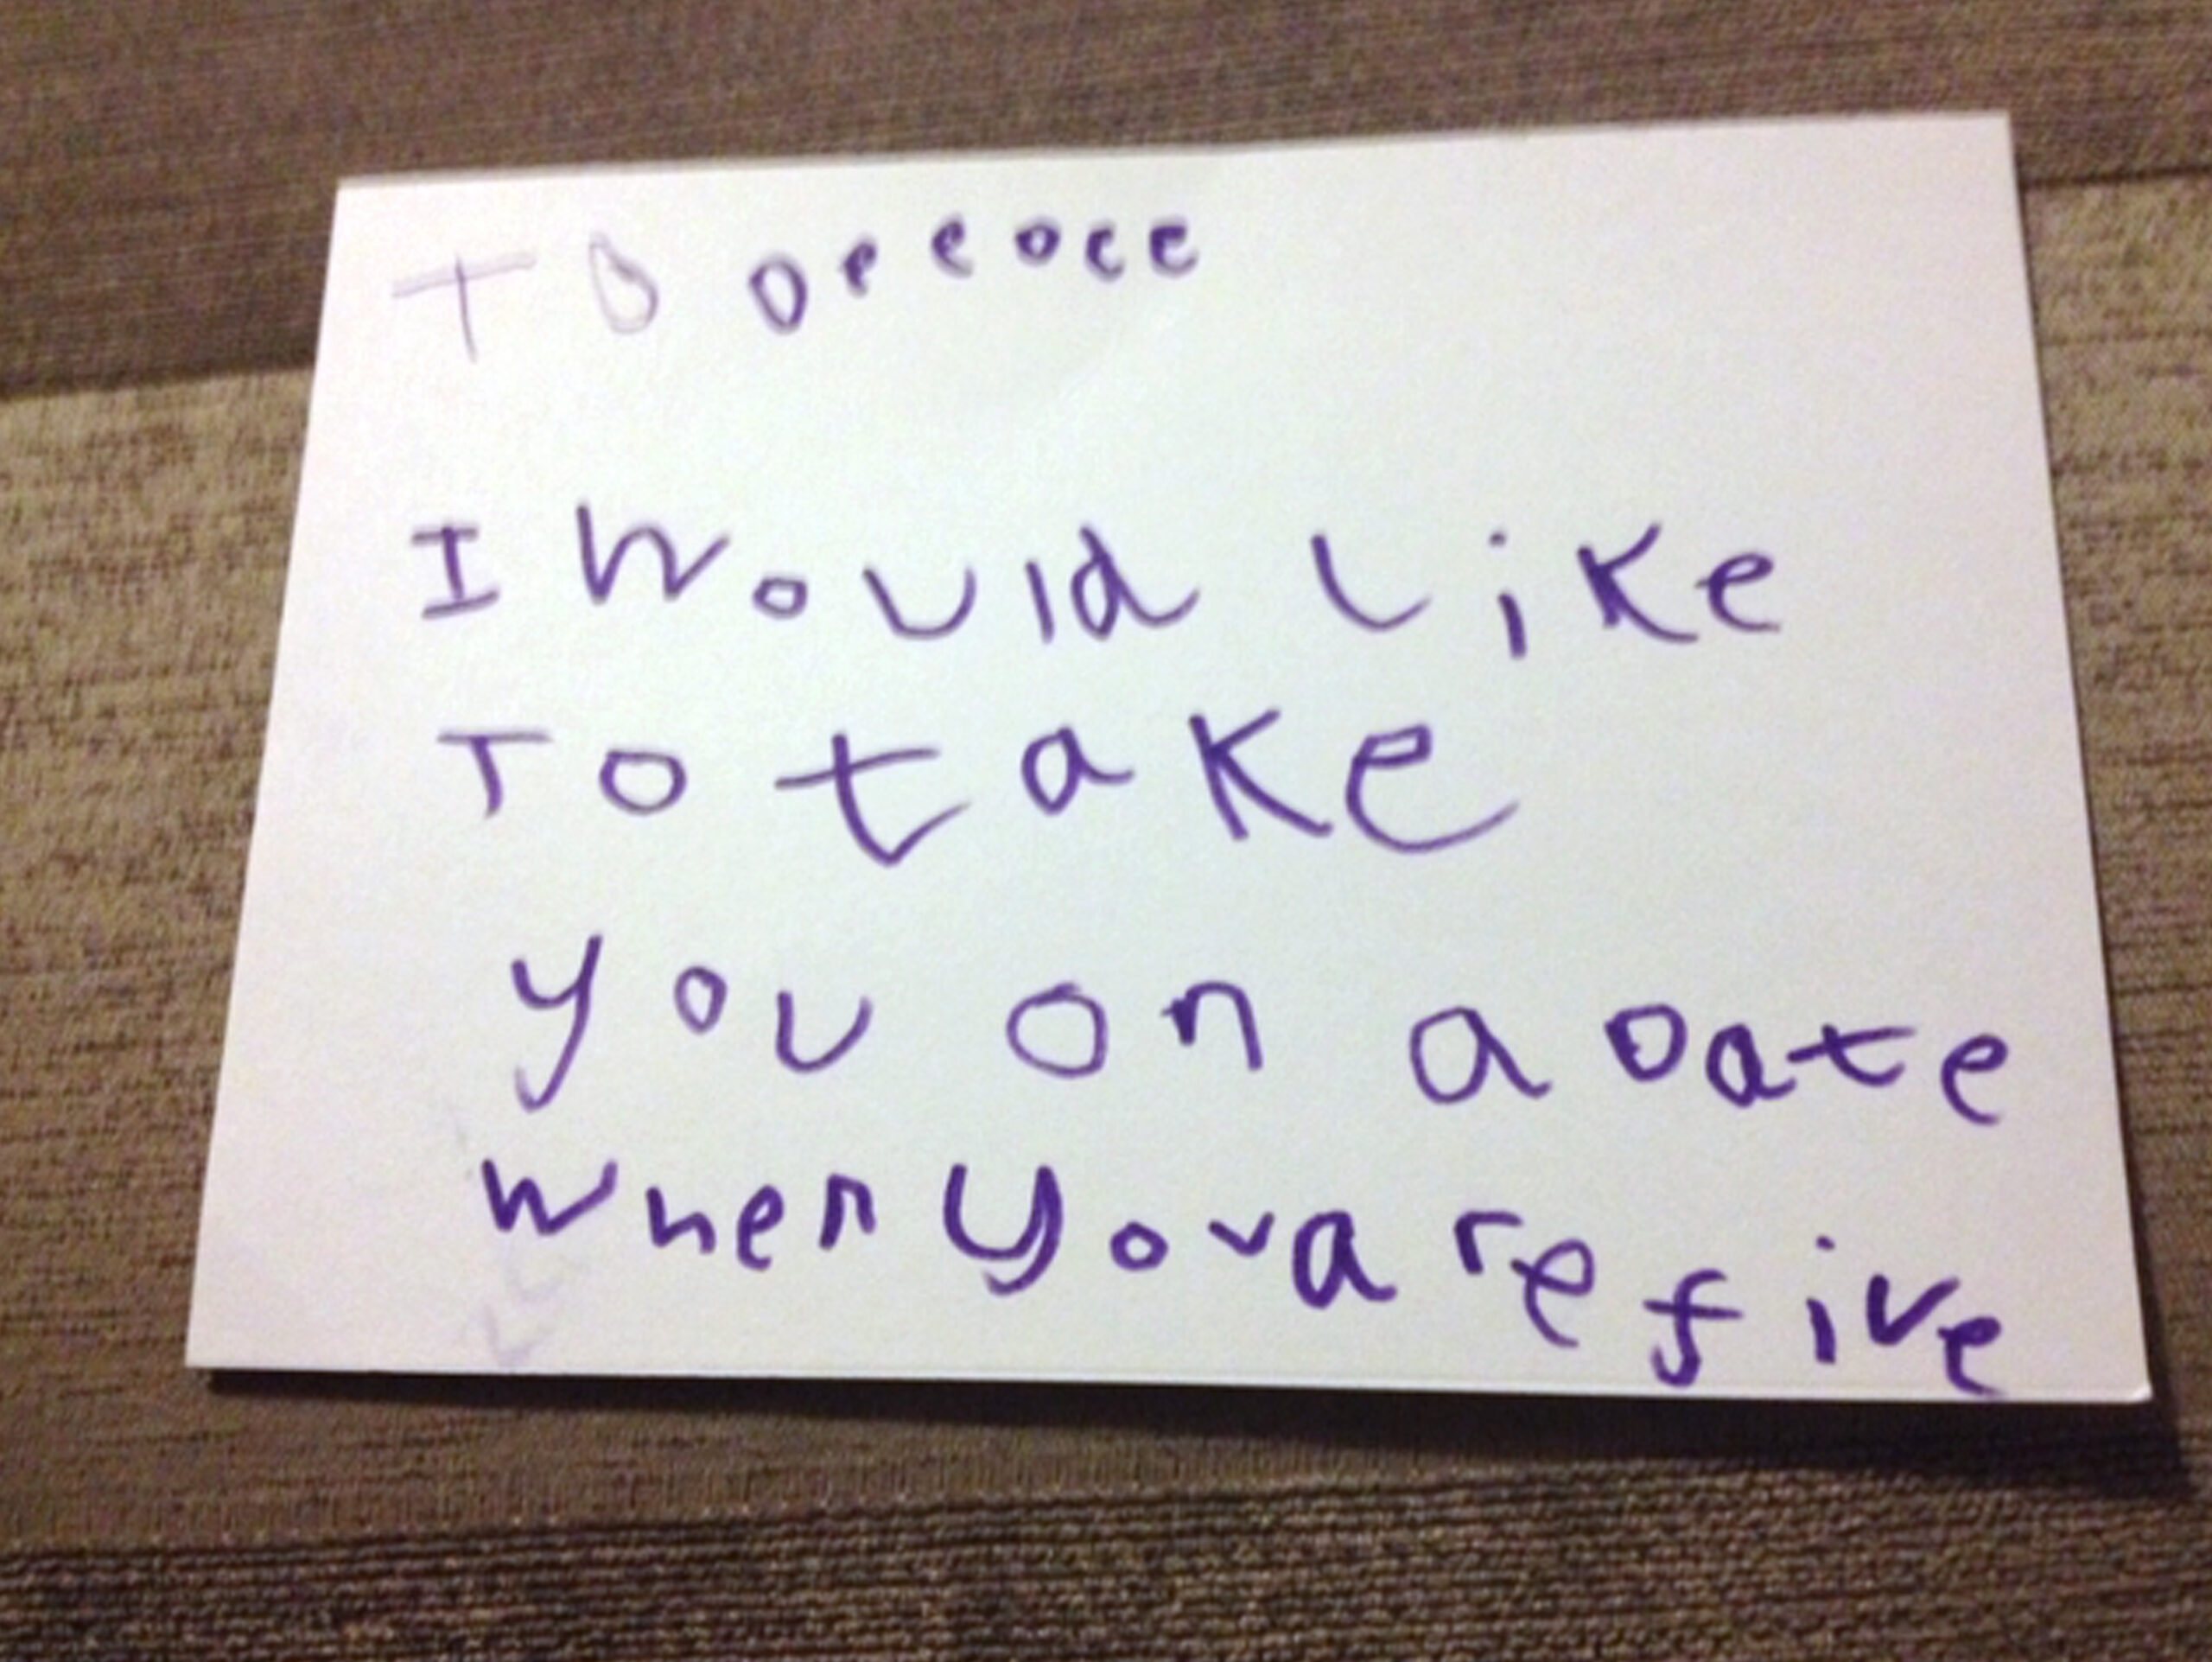 To
I would like
To take
you on a Date
when you are five